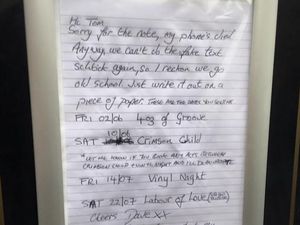 Hi Tom,
Sorry for the note, my phone's died
Anyway, we can't do the fake text
schtick again, so I reckon we go
old school just write it out on a
piece of paper. These are the dates you sent me
FRI 02/06 4og of Groove
10/06
SAT Crimson Child
*Let me know if you book any acts between
Crimson Child & Vinyl Night and I'll
FRI 14/07 Vinyl Night
SAT 22/07 Labour of Love
Cheers Dave xx